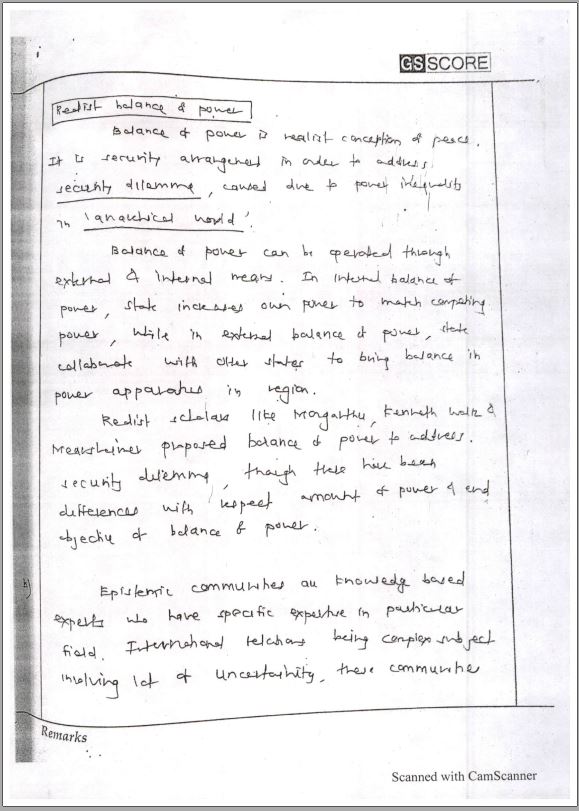 GS SCORE
Realist balance of power
Balance of power is realist conception of peace.
It is security arrangement in order to address
security dilemma, caused due to power inequality
in 'anarchical world'.
Balance of power can be operated through
external & internal means. In internal balance of
power, state increases own power to match competing
power, while in external balance of power, state
collaborate with other states to bring balance in
power apparatus in region.
Realist scholars like Morganthu, Kenneth Waltz &
Mearsheimer proposed balance of power to address.
security dilemma, though there have been
differences with respect amount of power & end
objective of balance of power.
b)
Epistemic communities are knowledge based
experts who have specific expertise in particular
field. International relations being complex subject
involving lot of uncertainity, these communities
Remarks
Scanned with CamScanner